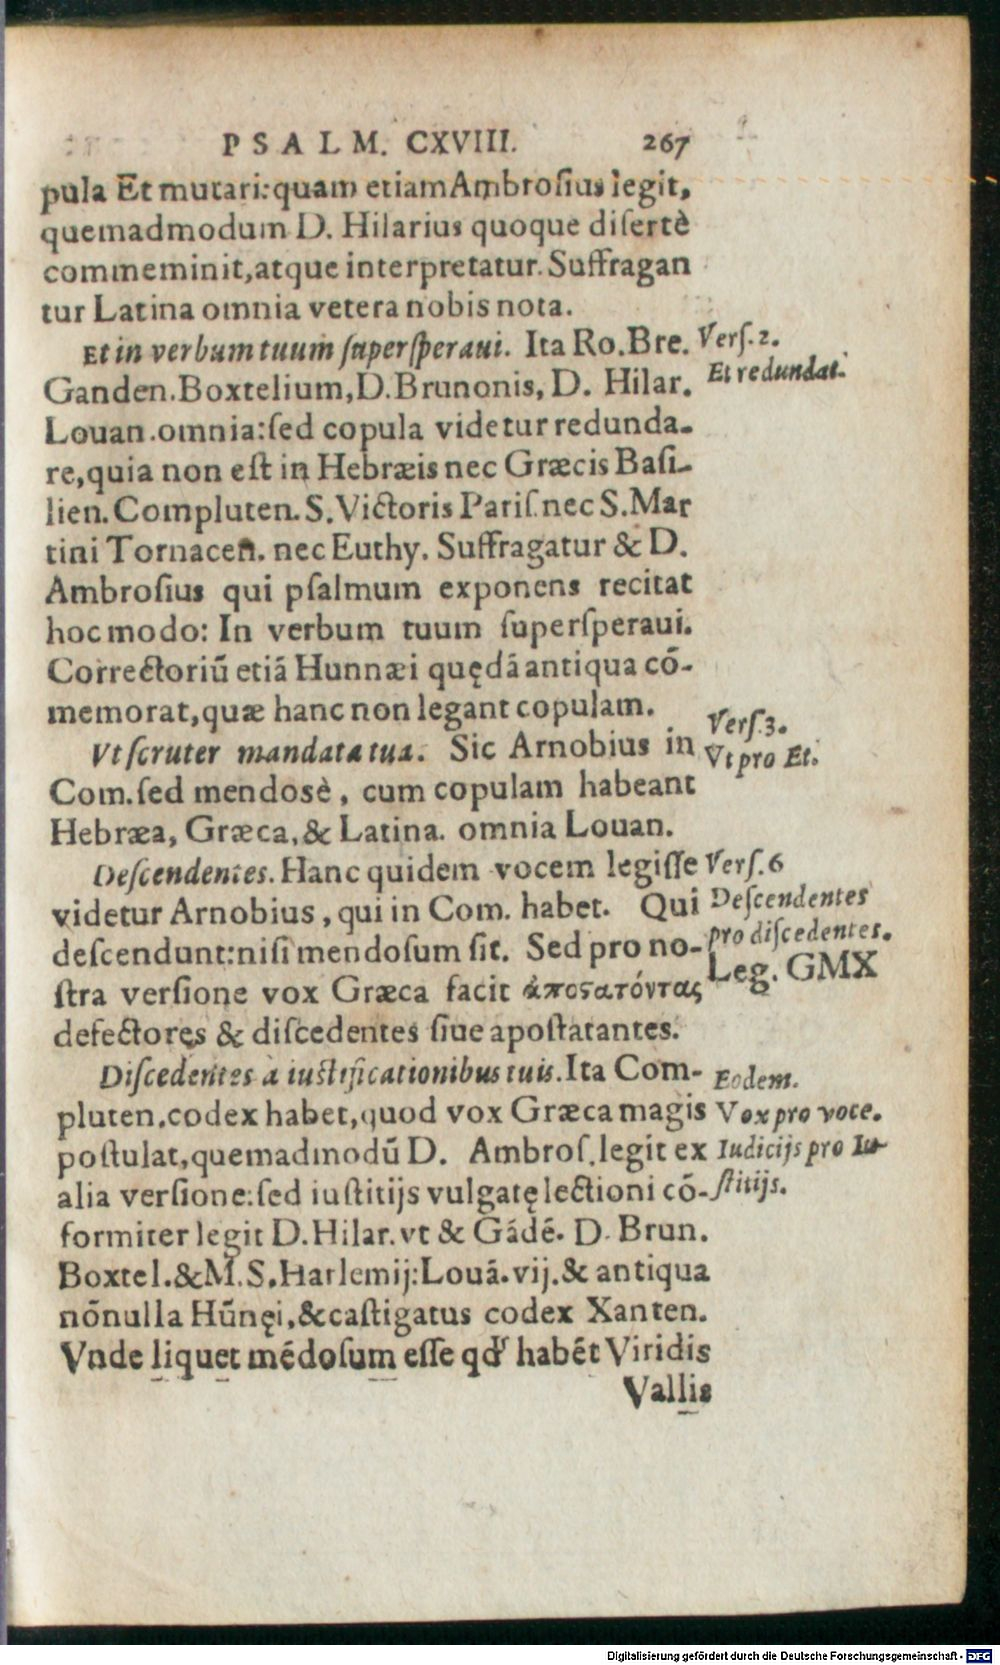 PSALM. CXVIII. 267
pula Et mutari: quam etiam Ambrosius legit,
quemadmodum D. Hilarius quoque disertè
commeminit, atque interpretatur. Suffragan
tur Latina omnia vetera nobis nota.
Et in verbum tuum supersperaui. Ita Ro. Bre.
Vers. 2.
Ganden. Boxtelium, D. Brunonis, D. Hilar.
Et redundat.
Louan. omnia: sed copula videtur redunda-
re, quia non est in Hebræis nec Græcis Basi-
lien. Compluten. S. Victoris Paris. nec S. Mar
tini Tornacen. nec Euthy. Suffragatur & D.
Ambrosius qui psalmum exponens recitat
hoc modo: In verbum tuum supersperaui.
Correctoriũ etiã Hunnæi quędã antiqua cõ-
memorat, quæ hanc non legant copulam.
Vers. 3.
Vt scruter mandata tua. Sic Arnobius in
Vt pro Et.
Com. sed mendosè, cum copulam habeant
Hebræa, Græca, & Latina. omnia Louan.
Descendentes. Hanc quidem vocem legisse
Vers. 6
videtur Arnobius, qui in Com. habet. Qui
Descendentes
descendunt: nisi mendosum sit. Sed pro no-
pro discedentes.
stra versione vox Græca facit ἀποςατόντας
Leg. GMX
defectores & discedentes siue apostatantes.
Discedentes à iustificationibus tuis. Ita Com-
Eodem.
pluten. codex habet, quod vox Græca magis
Vox pro voce.
postulat, quemadmodũ D. Ambros. legit ex
Iudicijs pro Iu-
alia versione: sed iustitijs vulgatę lectioni cõ-
stitijs.
formiter legit D. Hilar. vt & Gãdẽ. D. Brun.
Boxtel. & M. S. Harlemij: Louã. vij. & antiqua
nõnulla Hũnęi, & castigatus codex Xanten.
Vnde liquet mẽdosum esse qd' habẽt Viridis
Vallis
Digitalisierung gefördert durch die Deutsche Forschungsgemeinschaft - DFG